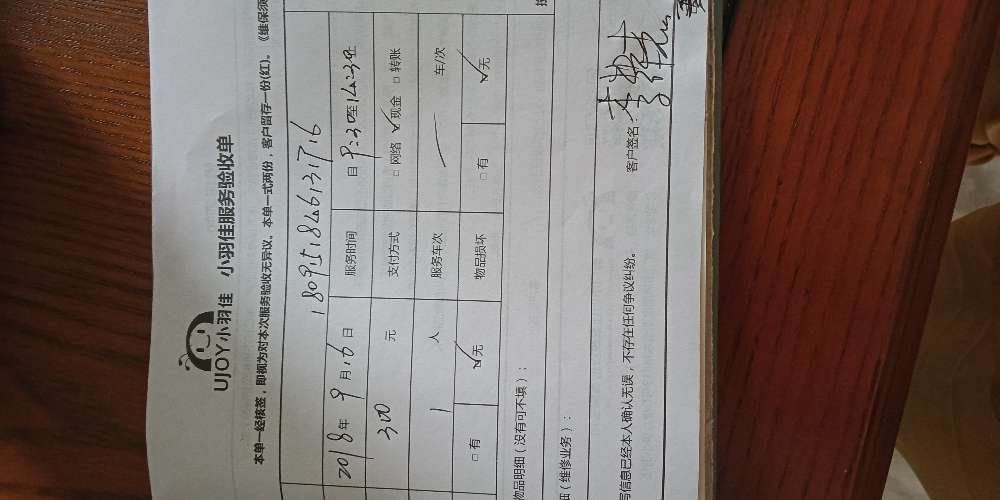 UJOY小羽佳 小羽佳服务验收单
本单一经核签，即视为对本次服务验收无异议。本单一式两份，客户留存一份(红)。《维保须
2018年 9月16日 服务时间 日 9:30至14:23
300 元 支付方式 □网络 ☑现金 □转账
1 人 服务车次 车/次
□有 ☑无 物品损坏 □有 ☑无
物品明细（没有可不填）：
（维修业务）：
信息已经本人确认无误，不存在任何争议纠纷。 客户签名：